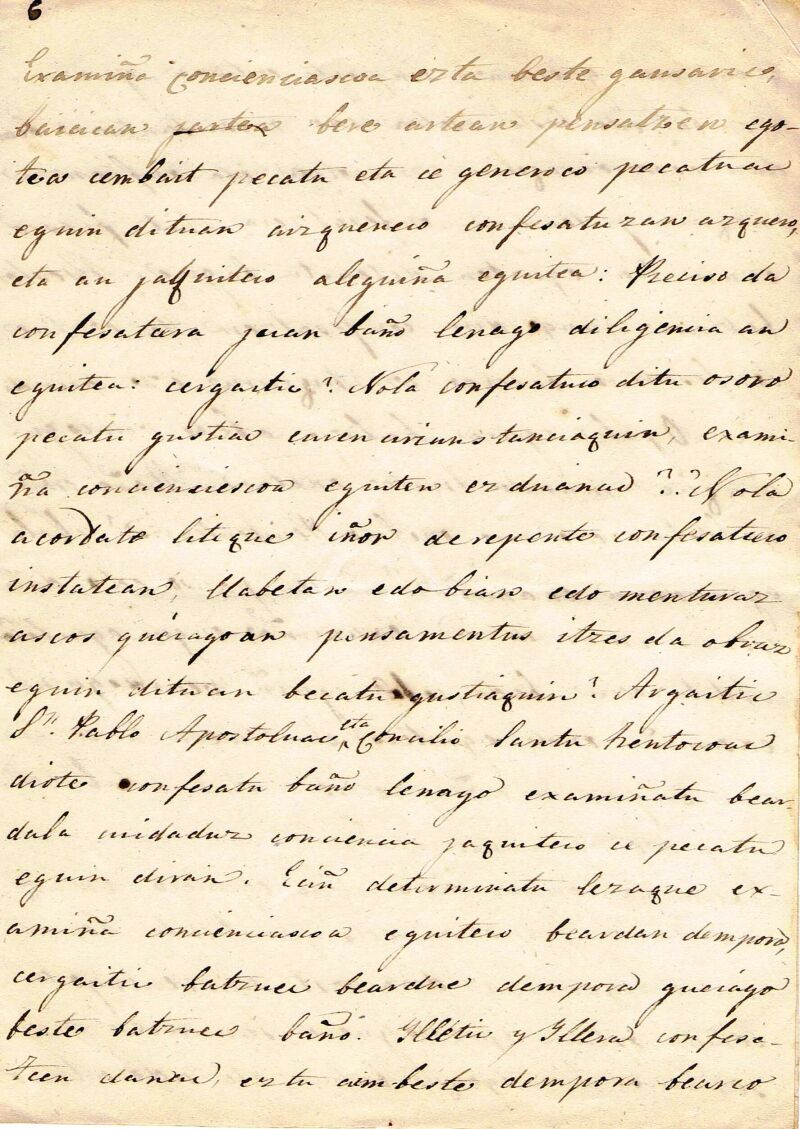 6
Examiña Concienciascoa ezta beste gausaric,
baicican jartea bere artean pensatzen ego-
tea cembait pecatu eta ce generoco pecatuac
eguin dituan aizquenero confesatu zan azquero,
eta au jaquiteco aleguiña eguitea: Preciso da
confesatcera juan baño lenago diligencia au
eguitea: cergaitic? Nola confesatuco ditu osoro
pecatu gustiac euren circunstanciaquin, exami-
ña concienciescoa eguiten ez duanac?? Nola
acordato liteque iñor derepente confesatuco
instatean, llabetan edo bian edo menturaz
ascos gueiagoan pensamentus itzes da obraz
eguin dituan becatu gustiaquin? Argaitic
Sn. Pablo Apostoluac eta Concilio Santu Trentocoac
diote confesatu baño lenago examiñatu bear-
dala cuidaduz conciencia jaquiteco ce pecatu
eguin diran. Eciñ determinatu lezaque ex-
amiña concienciascoa eguiteco beardan dempora,
cergaitic batzuec beardue dempora gueiago
beste batzuec baño. Illétic y Illera confesa-
tcen danac, eztu aimbeste dempora bearco